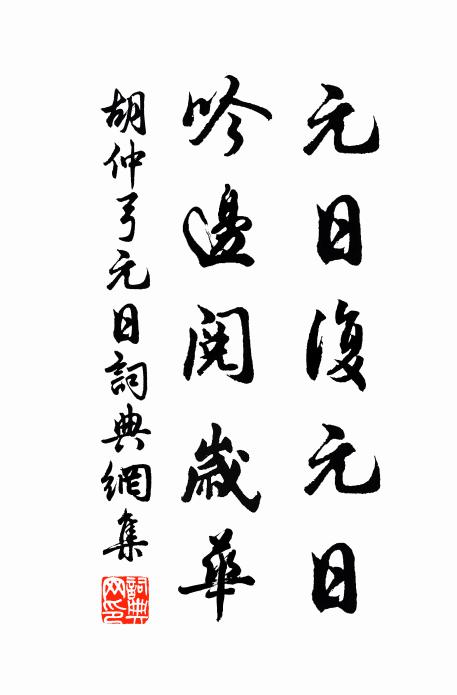 元日復元日
吟邊閱歲華
胡仲弓元日詞典網集
詞典网印